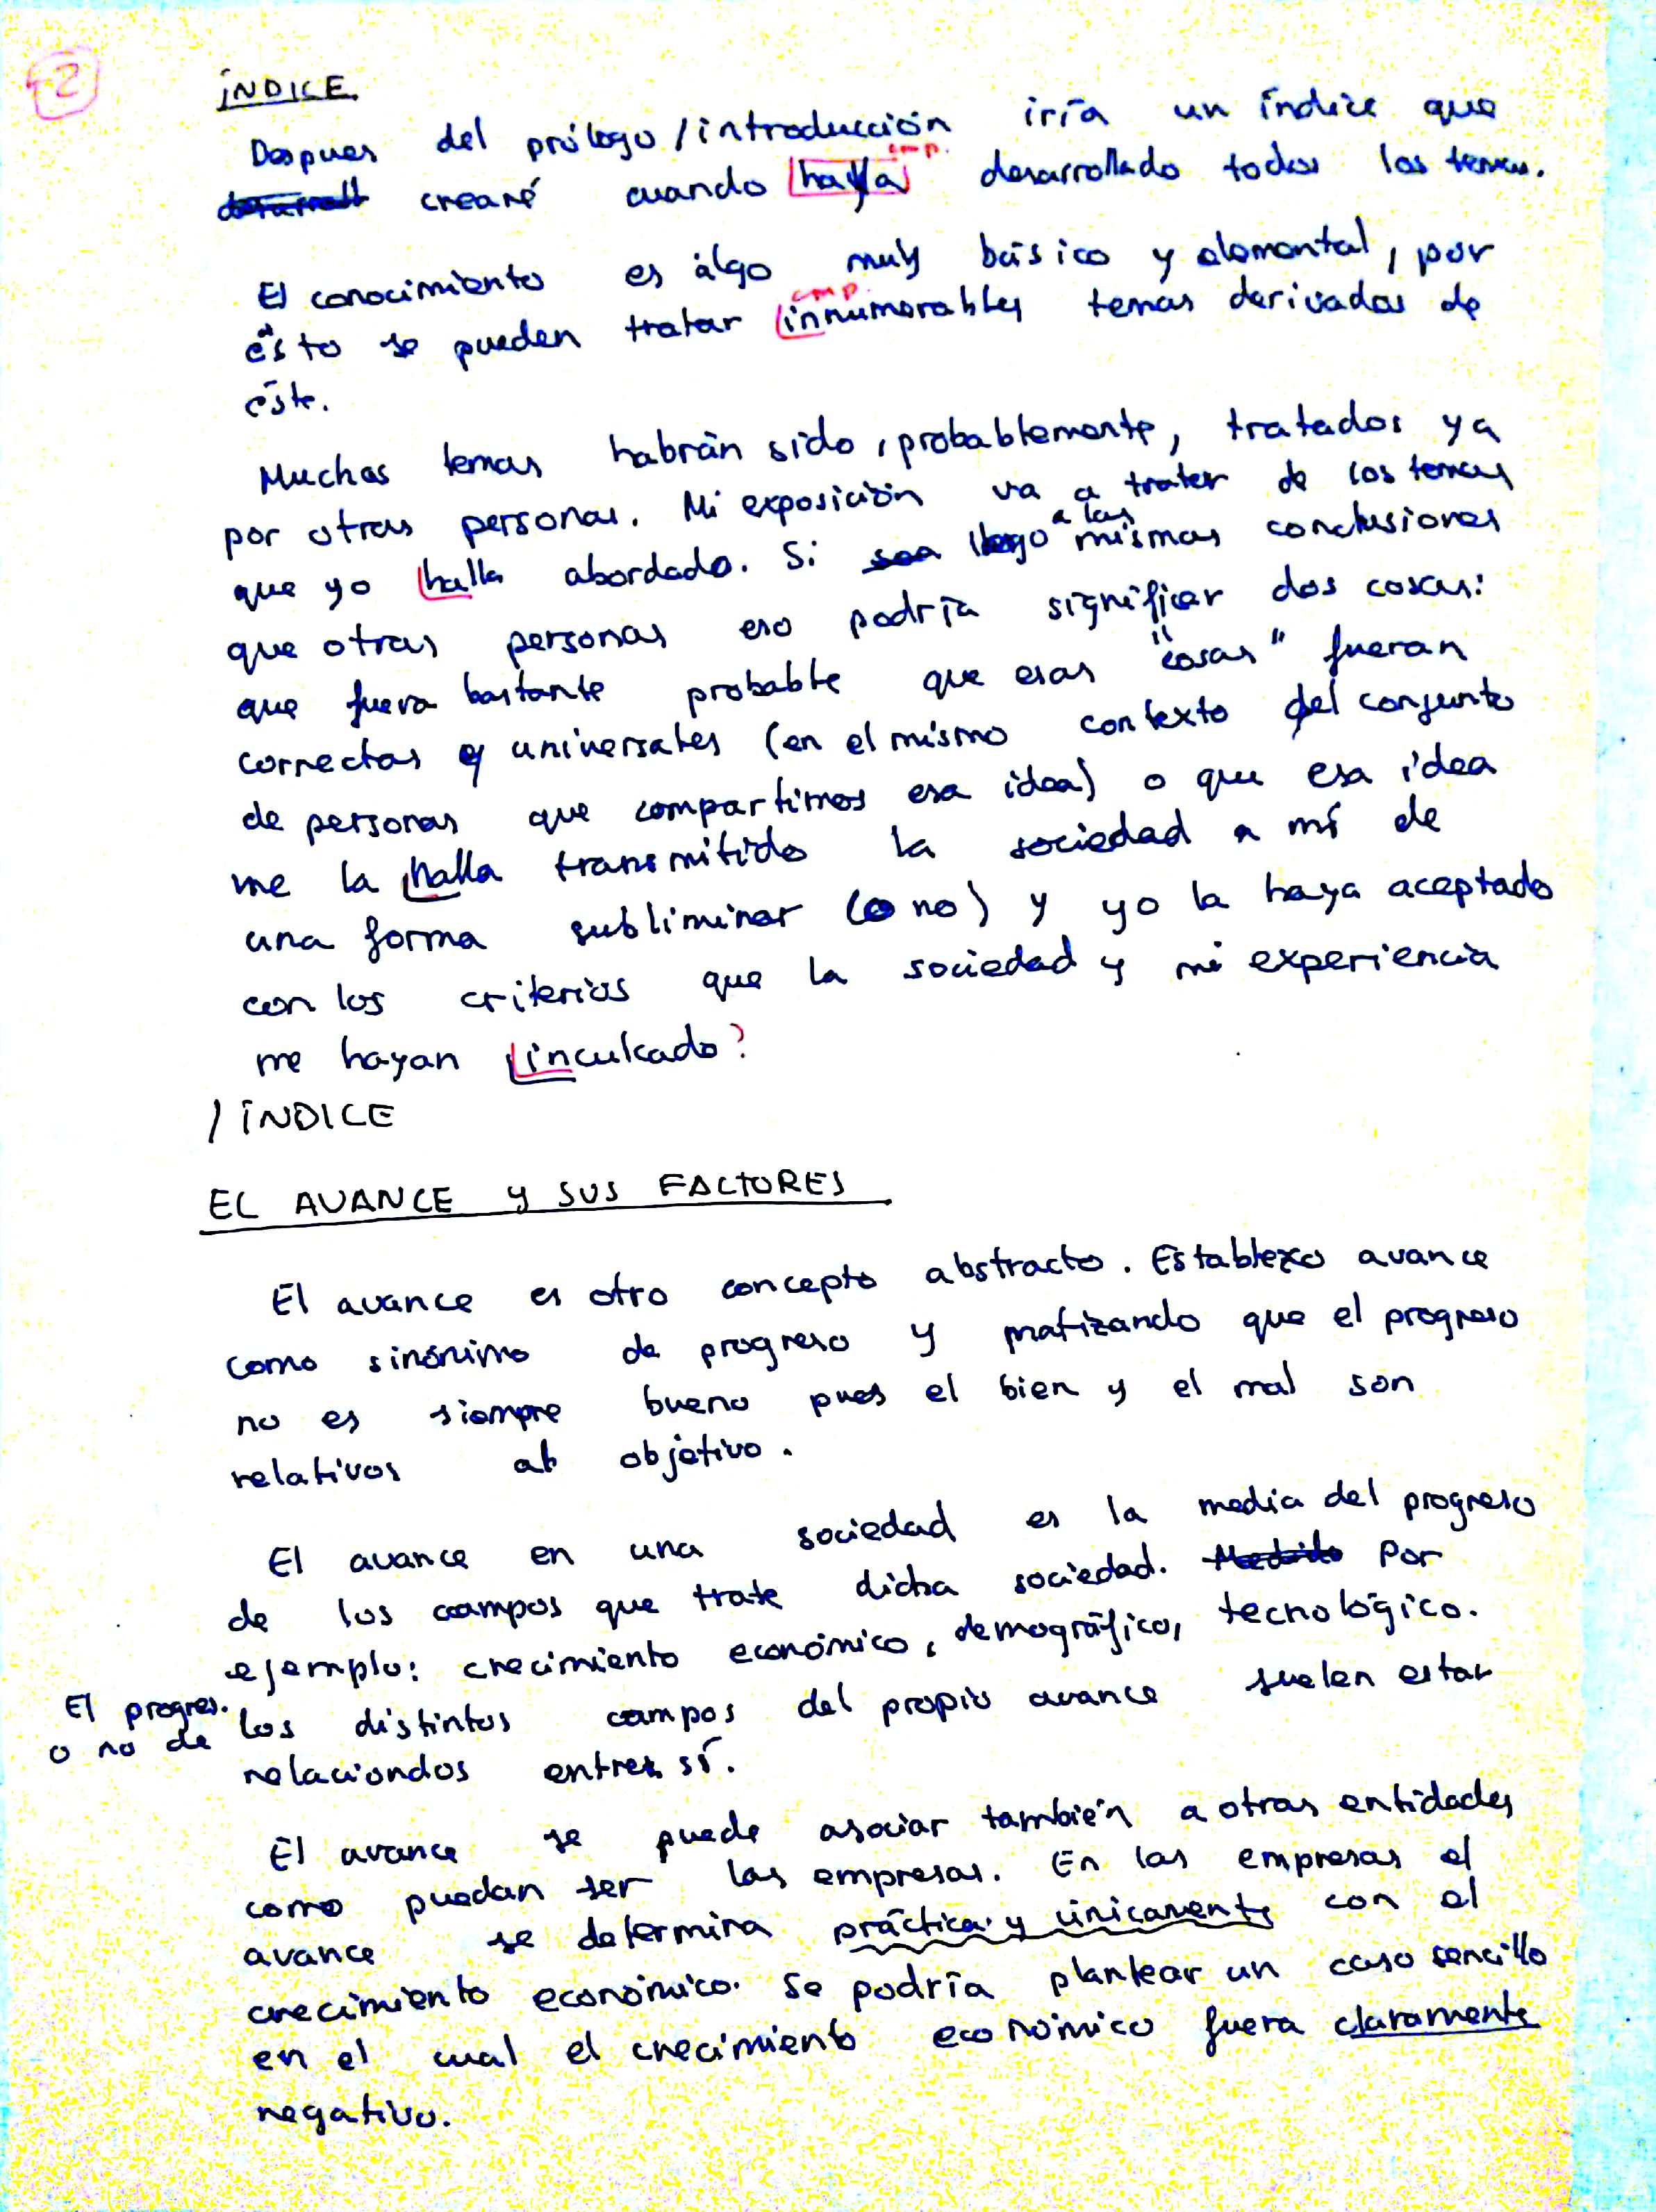 2
ÍNDICE
Despues del prólogo/introducción iría un índice que
crearé cuando haya desarrollado todos los temas.
cmp.
El conocimiento es álgo muy básico y elemental, por
cmp.
ésto se pueden tratar innumerables temas derivados de
éste.
Muchos temas habrán sido, probablemente, tratados ya
por otras personas. Mi exposición va a tratar de los temas
que yo halla abordado. Si llego a las mismas conclusiones
que otras personas eso podría significar dos cosas:
que fuera bastante probable que esas "cosas" fueran
correctas y universales (en el mismo contexto del conjunto
de personas que compartimos esa idea) o que esa idea
me la halla transmitido la sociedad a mí de
una forma subliminar (o no) y yo la haya aceptado
con los criterios que la sociedad y mi experiencia
me hayan inculcado?
/ ÍNDICE
EL AVANCE y SUS FACTORES
El avance es otro concepto abstracto. Establezco avance
como sinónimo de progreso y matizando que el progreso
no es siempre bueno pues el bien y el mal son
relativos al objetivo.
El avance en una sociedad es la media del progreso
de los campos que trate dicha sociedad. Por
ejemplo: crecimiento económico, demográfico, tecnológico.
El progres. o no de
los distintos campos del propio avance suelen estar
relaciondos entre sí.
El avance se puede asociar también a otras entidades
como puedan ser las empresas. En las empresas el
avance se determina práctica y únicamente con el
crecimiento económico. Se podría plantear un caso sencillo
en el cual el crecimiento económico fuera claramente
negativo.